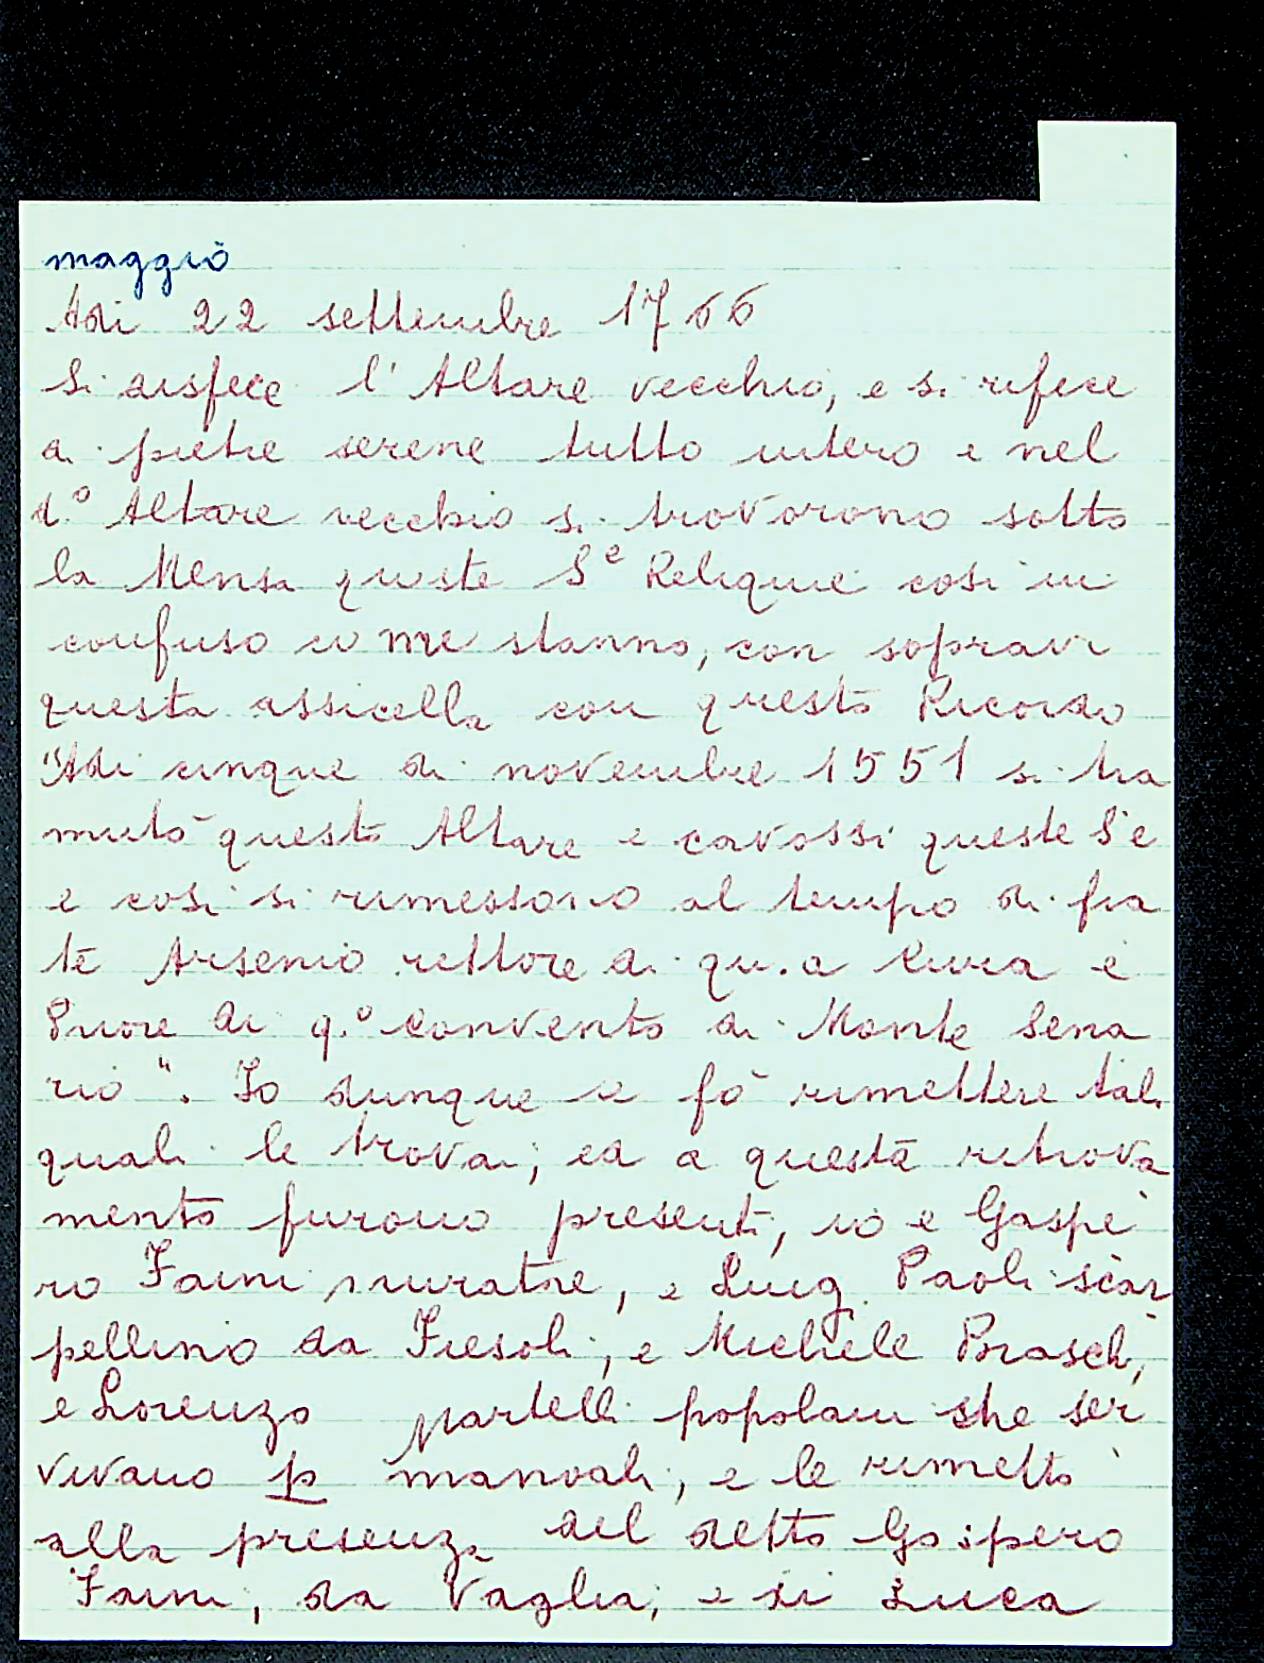 maggio
Adi 22 settembre 1766
Si disfece l'Altare vecchio, e si rifece
di pietre serene tutto intero e nel
d.º Altare vecchio si trovorono sotto
la Mensa queste Sᵉ Reliquie così in
confuso come stanno, con sopravi
questa assicella con questo Ricordo
"Adi cinque di novembre 1551 si tra
mutò questo Altare e cavossi queste S e
e così si rimessono al tempo di fra
te Arsenio rettore di qu.a Cura e
Priore di q.º Convento di Monte Sena
rio". Io dunque le fò rimettere tali
quali le trovai, ed a questa ritrova
mento furono presenti, io e Gaspe
ro Faini muratore, e Luig. Paoli scar
pellino da Fiesoli, e Michele Braschi,
e Lorenzo Martelli popolani che ser
vivano p manoali, e le rimetto
alla presenza del detto Gaspero
Faini, da Vaglia, e di Luca